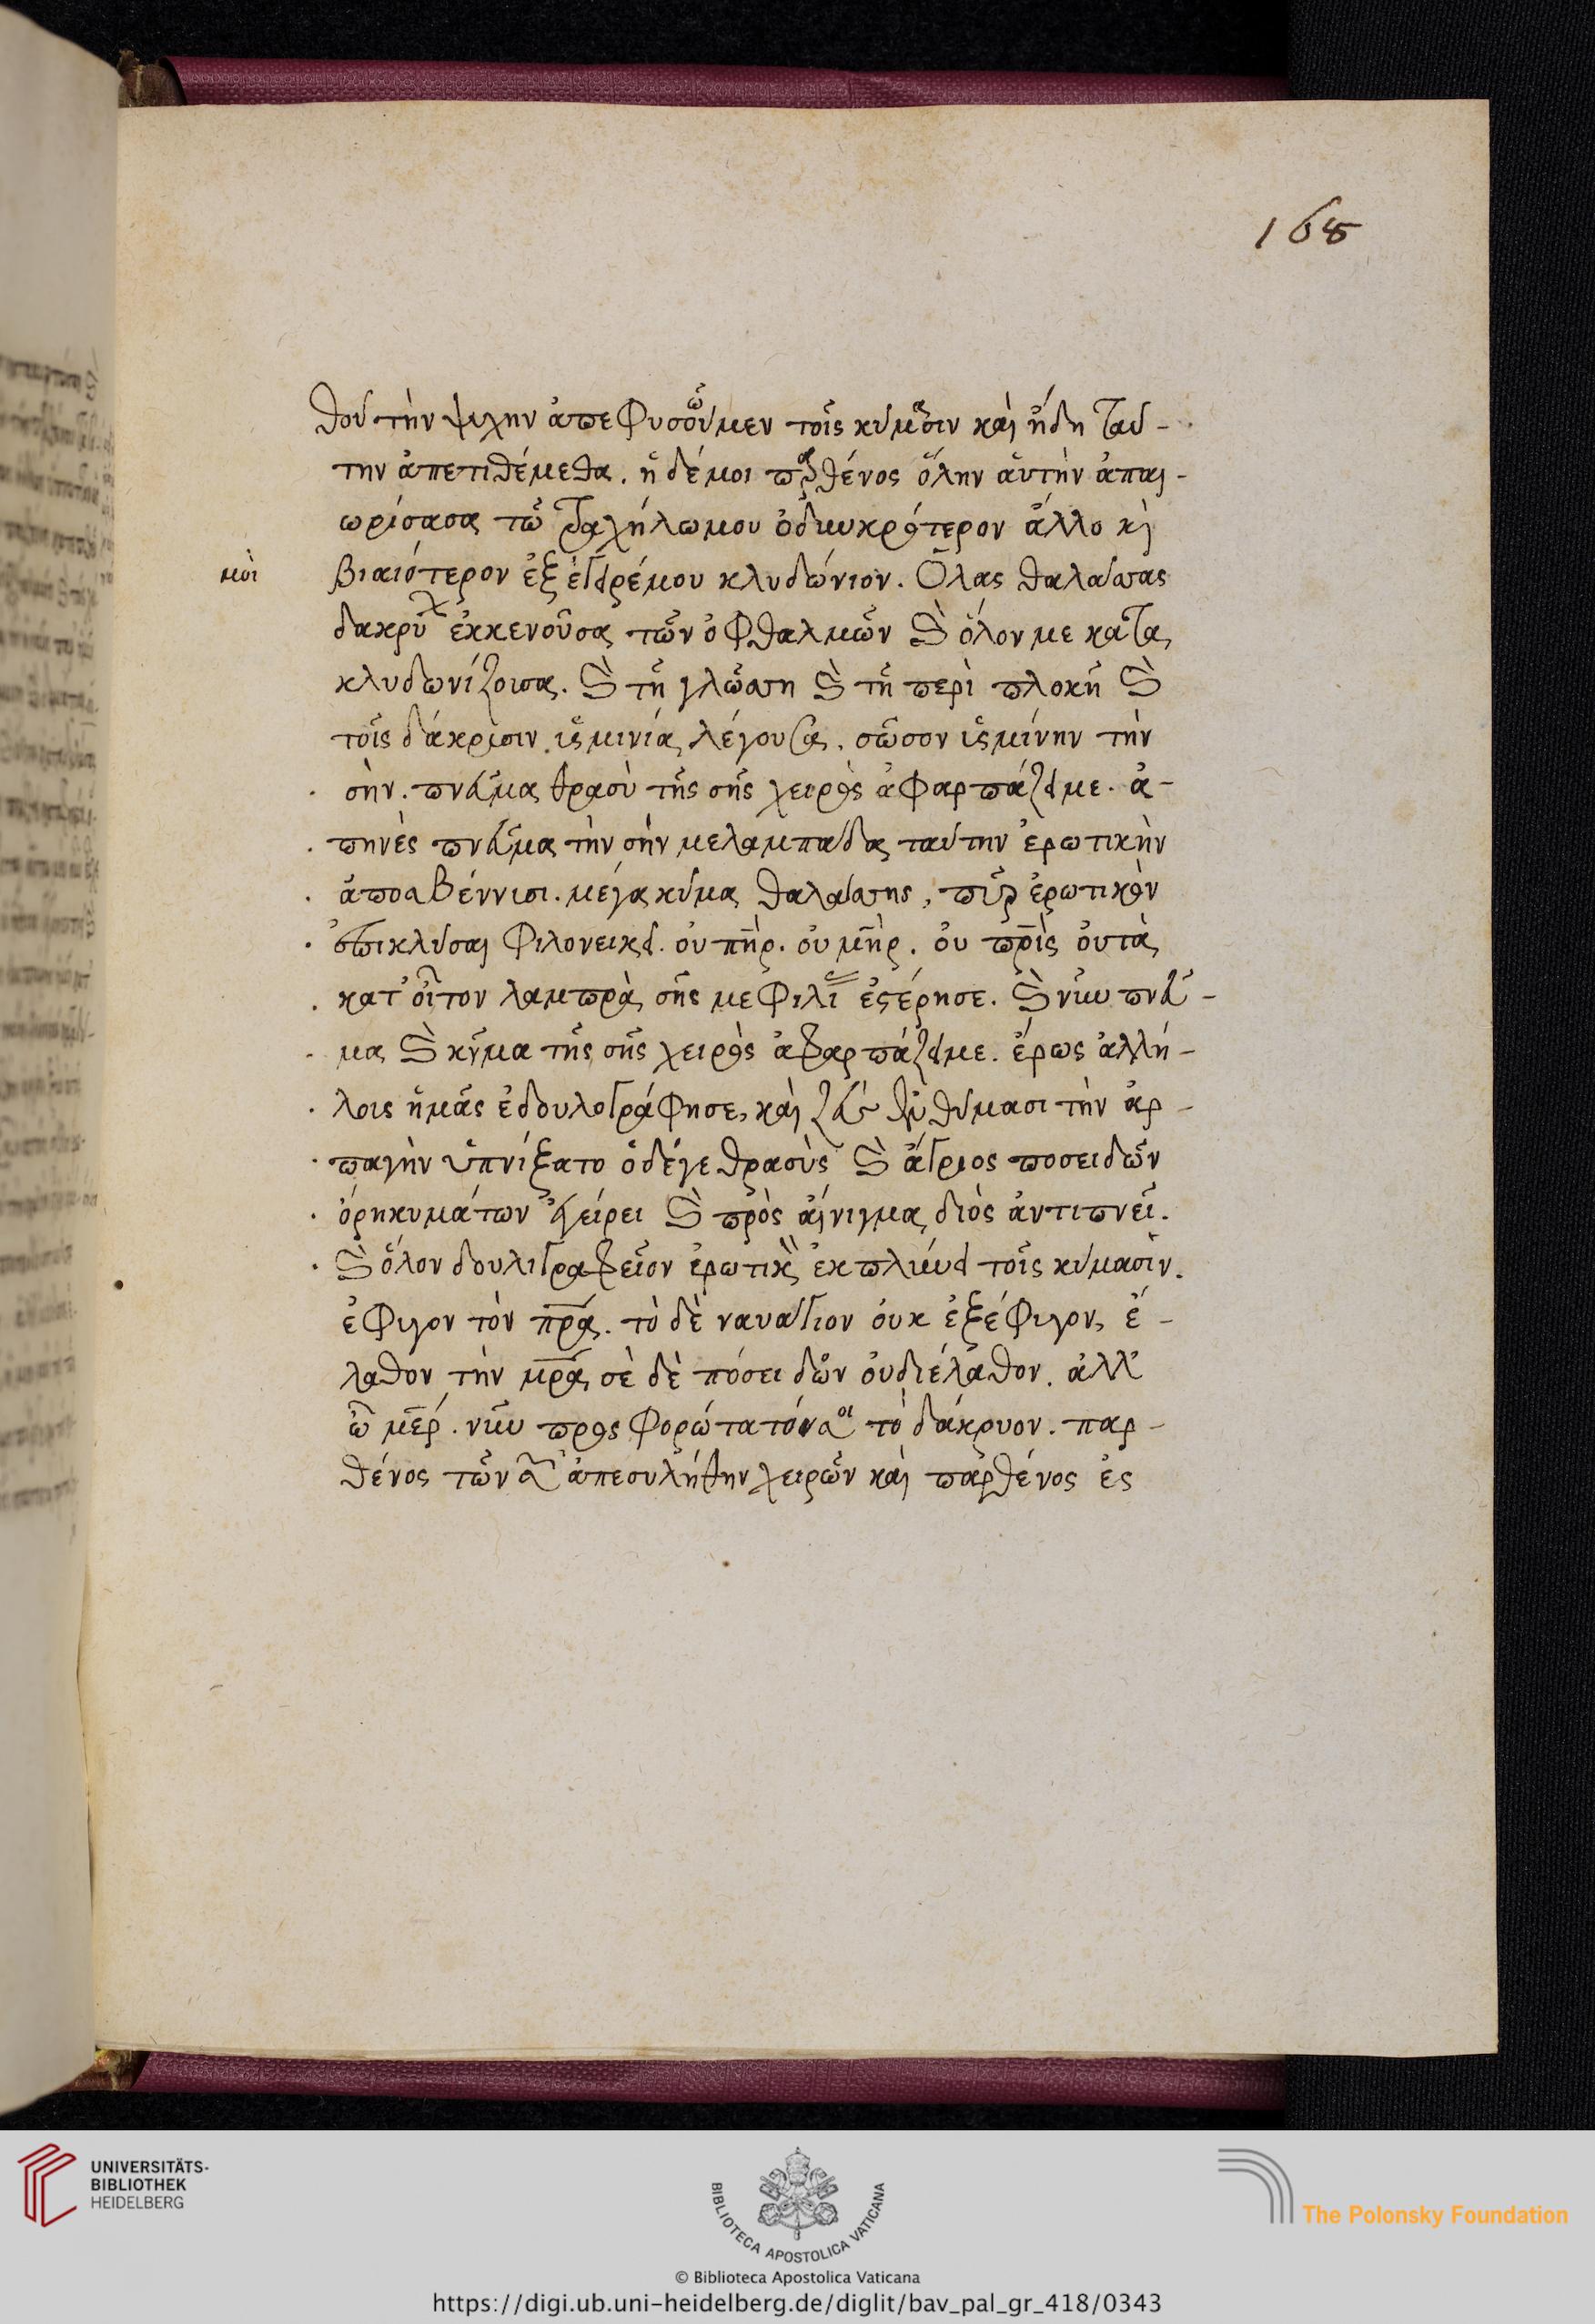 168
θου τὴν ψυχην ἀπεφυσοῦμεν τοῖς κύμασιν καὶ ἤδη ταύ-
την ἀπετιθέμεθα. ἡ δέ μοι παρθένος ὅλην αὑτὴν ἀπαι-
ωρίσασα τῶ τραχήλω μου ὀδυνηρότερον ἄλλο κὶ
μοὶ
βιαιότερον ἐξ ἐγειρέ μου κλυδώνιον. Ὅλας θαλάσσας
δακρύων ἐκκενοῦσα τῶν ὀφθαλμῶν καὶ ὅλον με κατα
κλυδωνίζουσα. καὶ τῆ γλώσση καὶ τῆ περὶ πλοκῆ καὶ
τοῖς δάκρυσιν. ὑσμινία λέγουσα. σῶσον ὑσμίνην τὴν
σὴν. πνεῦμα θρασὺ τῆς σῆς χειρὸς ἀφαρπάζει με. ἀ-
πηνὲς πνεῦμα τὴν σὴν με λαμπάδα ταύτην ἐρωτικὴν
ἀποσβέννυσι. μέγα κύμα θαλάσσης, πῦρ ἐρωτικὸν
ἐπικλύσαι φιλονεικεῖ. οὐ πηρ. οὐ μηρ. οὐ πρὶς οὐ τὰ
κατ' οἶτον λαμπρὰ σῆς με φιλί ἐστέρησε. καὶ νῦν πνεῦ-
μα καὶ κῦμα τῆς σῆς χειρὸς ἀφαρπάζει με. ἔρως ἀλλή-
λοις ἡμᾶς ἐδουλογράφησε, καὶ ζεὺς θύμασι τὴν ἁρ-
παγὴν ὑπνίξατο ὁ δέ γε θρασὺς καὶ ἄγριος ποσειδῶν
ὄρη κυμάτων ἐγείρει καὶ πρὸς αἴνιγμα διὸς ἀντιπνεῖ.
καὶ ὅλον δουλιγραφεῖον ἐρωτικὸν ἐκπλύνει τοῖς κύμασιν.
ἔφυγον τὸν πρα. τὸ δὲ ναυάγιον οὐκ ἐξέφυγον, ἔ-
λαθον τὴν μρα, σὲ δὲ πόσειδῶν οὐ διέλαθον. ἀλλ'
ὦ μερ. νῦν προσφορώτατόν σοι τὸ δάκρυον. παρ-
θένος τῶν σῶν ἀπεσυλήθην χειρῶν καὶ παρθένος ἐς
UNIVERSITÄTS-
BIBLIOTHEK
HEIDELBERG
BIBLIOTECA APOSTOLICA VATICANA
The Polonsky Foundation
© Biblioteca Apostolica Vaticana
https://digi.ub.uni-heidelberg.de/diglit/bav_pal_gr_418/0343